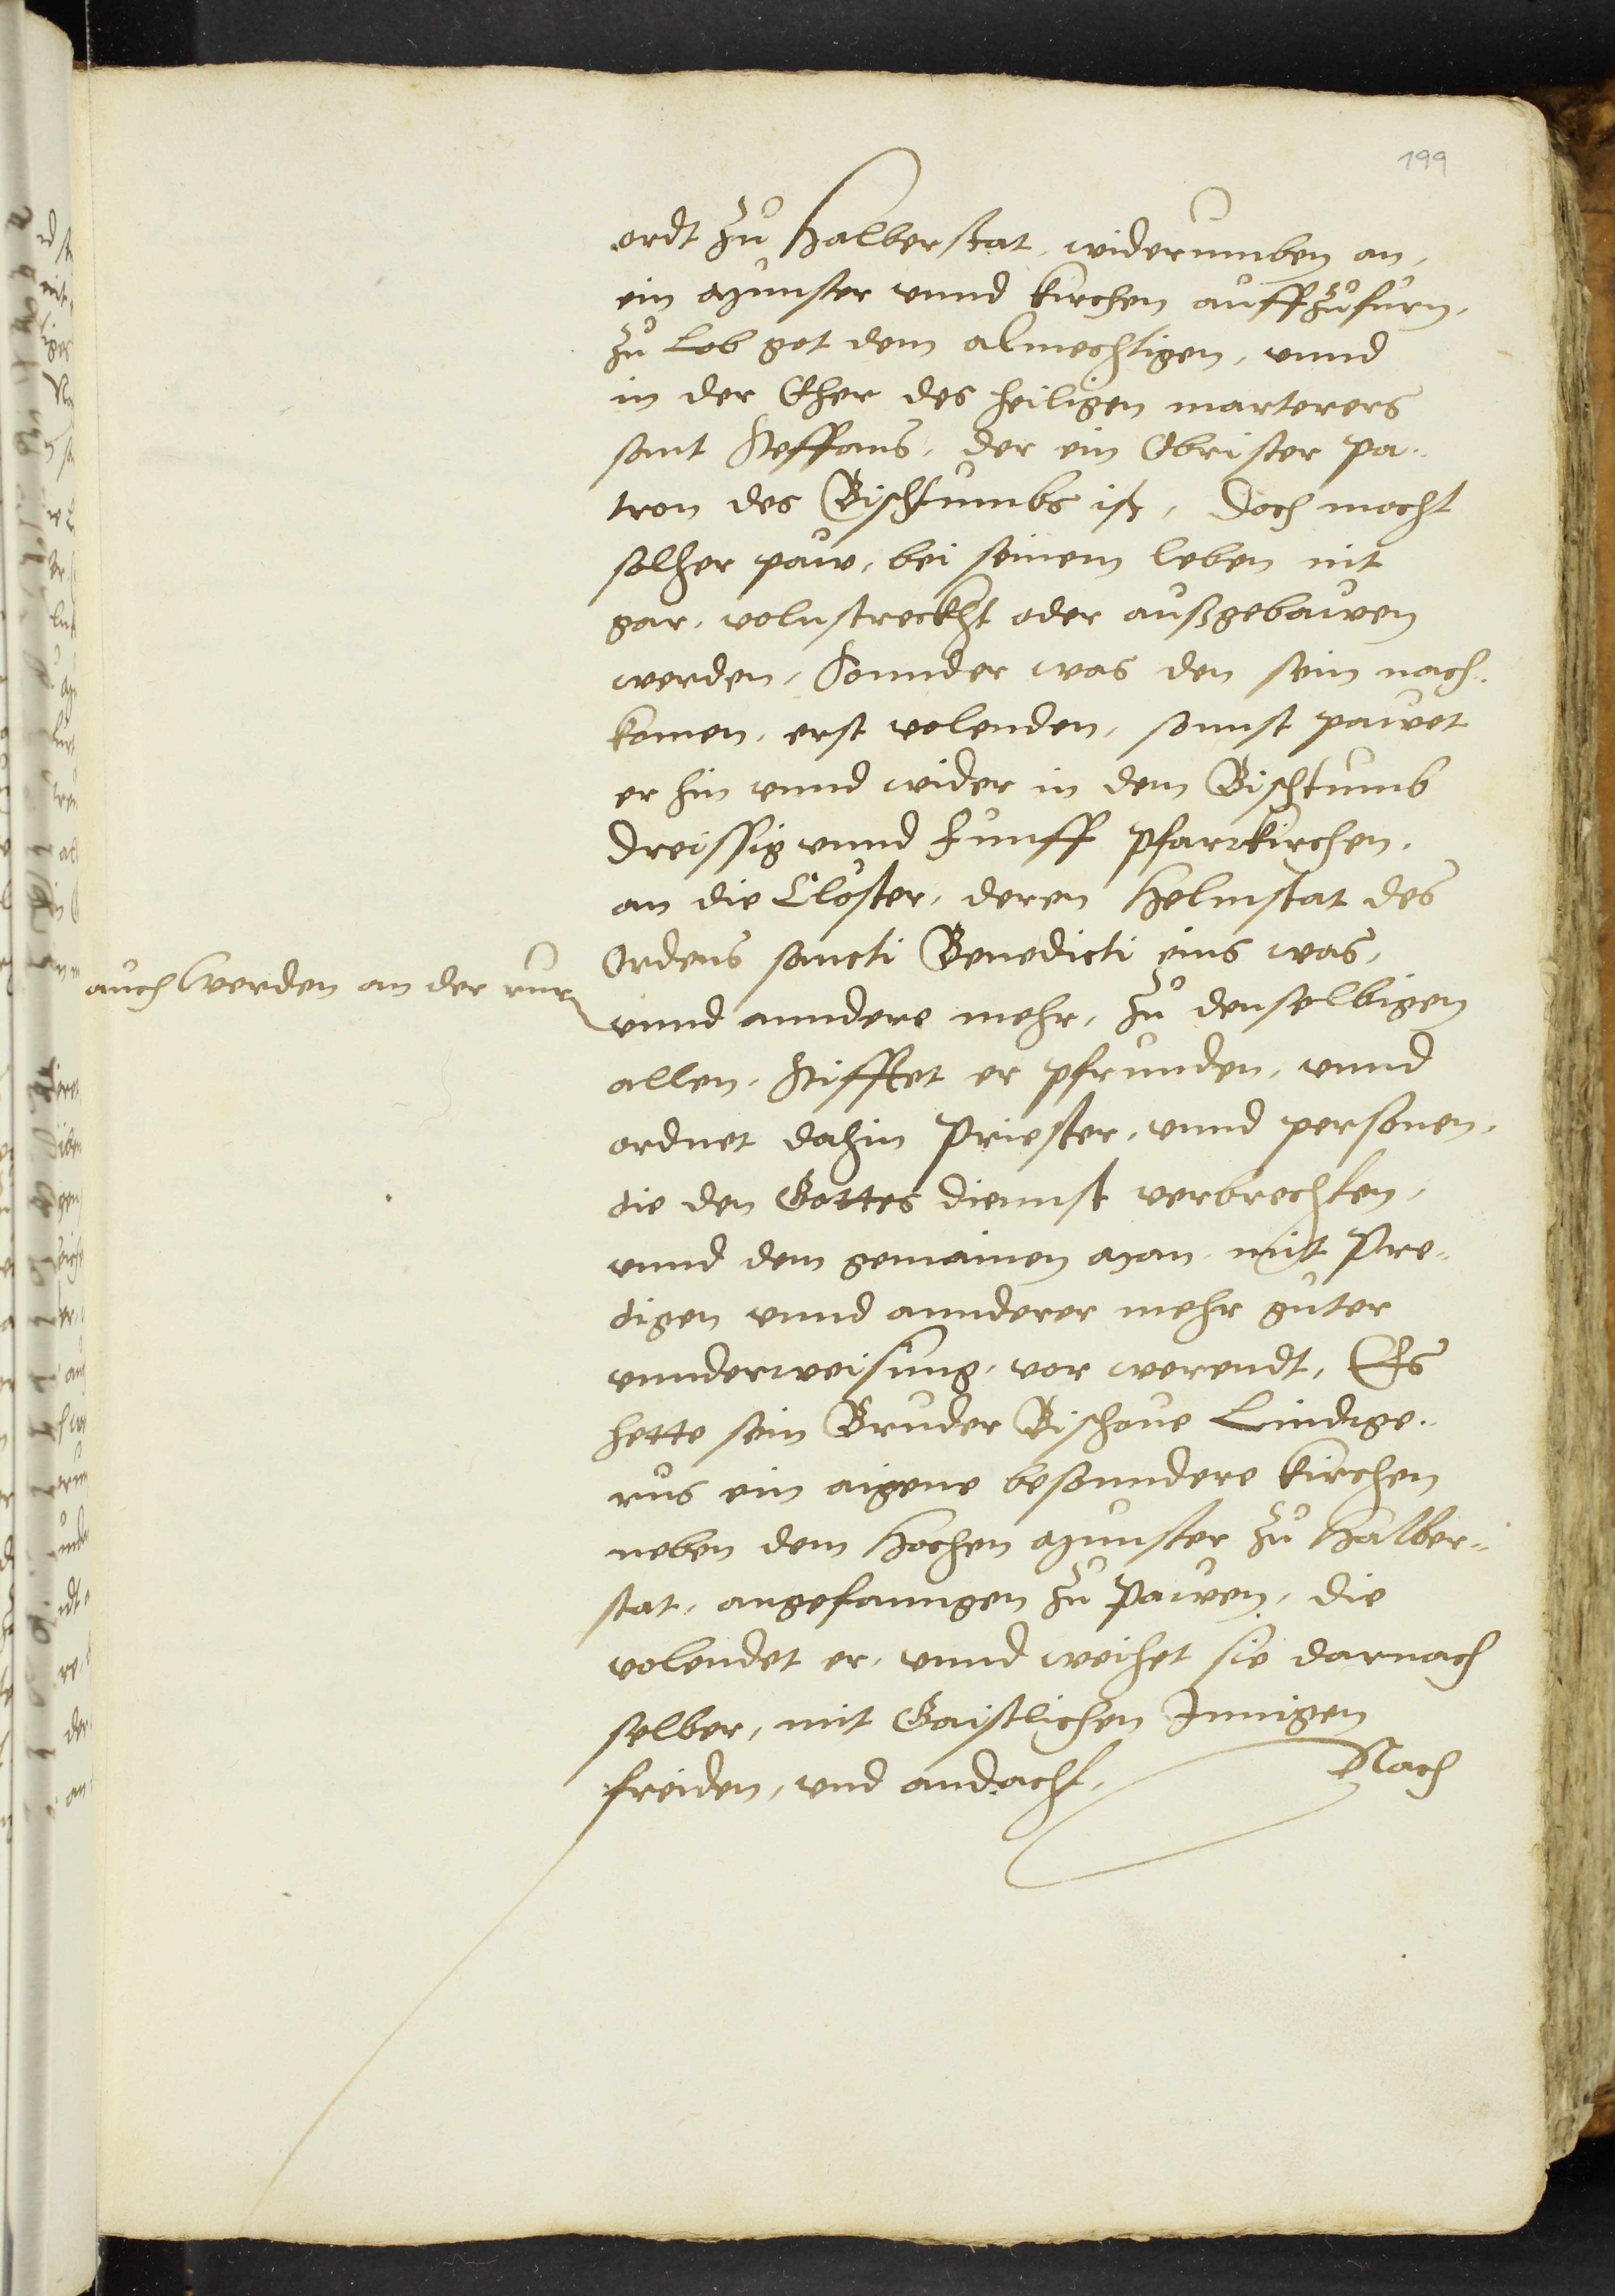 199
ordt zu Halberstat, widerumben an,
ein Munster vnnd kirchen auffzufurn,
zu Lob got dem almechtigen, vnnd
in der Eher des heiligen marterers
sant Steffans, der ein Obrister pa-
tron des Bischtumbs ist, Doch mocht
solher paw, bei seinem leben nit
gar, volnstreckht oder außgebawen
werden, Sonnder was den sein nach-
komen, erst volenden, sonnst pawet
er hin vnnd wider in dem Bischtumb
dreissig vnnd funff pfarrkirchen,
an die Closter, deren Helmstat des
Ordens sancti Benedicti eins was,
auch Werden an der rur
vnnd anndere mehr, zu denselbigen
allen, Stifftet er pfrunden, vnnd
ordnet dahin Priester, vnnd personen,
die den Gottes diennst verbrechten,
vnnd dem gemainen Man mit Pre-
digen vnnd annderer mehr guter
vnnderweisung, vor werendt, Es
hette sein Bruder Bischoue Lindige-
rus ein aigene besonndere kirchen
neben dem Hochen Munster zu Halber-
stat, angefanngen zu Pawen, die
volendet er, vnnd weihet sie darnach
selber, mit Gaistlichen Innigen
freiden, vnd andacht,
Nach